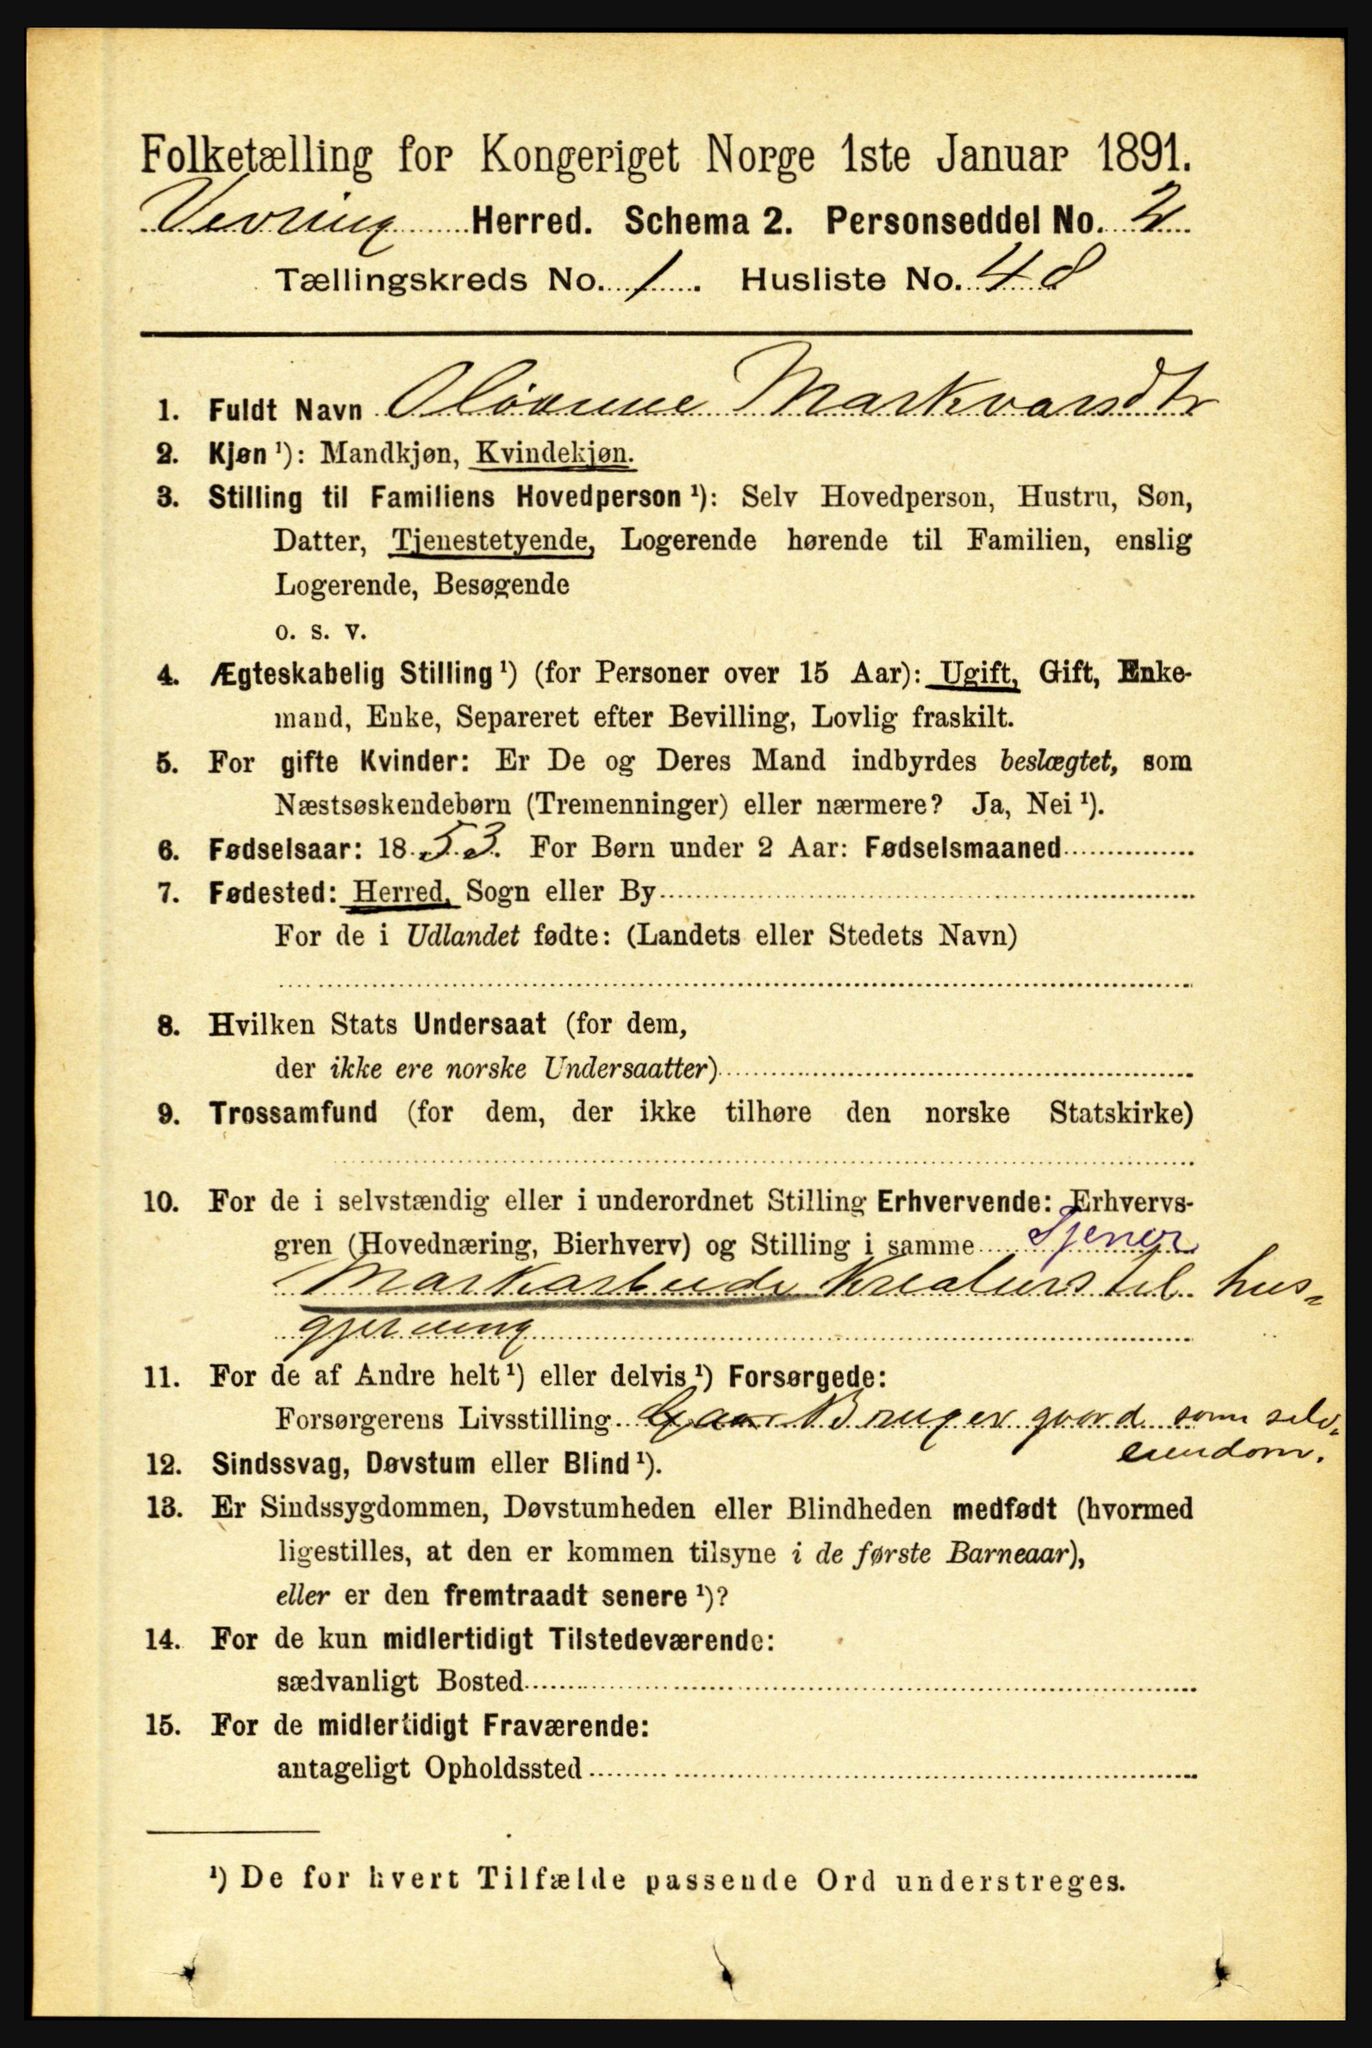 Folketælling for Kongeriget Norge 1ste Januar 1891.
Vevring Herred. Schema 2. Personseddel No. 2
Tællingskreds No. 1. Husliste No. 48
1. Fuldt Navn Markvardtr
2. Kjøn ¹): Mandkjøn, Kvindekjøn.
3. Stilling til Familiens Hovedperson ¹): Selv Hovedperson, Hustru, Søn,
Datter, Tjenestetyende, Logerende hørende til Familien, enslig
Logerende, Besøgende
o. s. v.
4. Ægteskabelig Stilling ¹) (for Personer over 15 Aar): Ugift, Gift, Enke-
mand, Enke, Separeret efter Bevilling, Lovlig fraskilt.
5. For gifte Kvinder: Er De og Deres Mand indbyrdes beslægtet, som
Næstsøskendebørn (Tremenninger) eller nærmere? Ja, Nei ¹).
6. Fødselsaar: 1853. For Børn under 2 Aar: Fødselsmaaned
7. Fødested: Herred, Sogn eller By
For de i Udlandet fødte: (Landets eller Stedets Navn)
8. Hvilken Stats Undersaat (for dem,
der ikke ere norske Undersaatter)
9. Trossamfund (for dem, der ikke tilhøre den norske Statskirke)
10. For de i selvstændig eller i underordnet Stilling Erhvervende: Erhvervs-
gren (Hovednæring, Bierhverv) og Stilling i samme Tjener
Markarbeide Kreaturstel hus-
gjerning
11. For de af Andre helt ¹) eller delvis ¹) Forsørgede:
Forsørgerens Livsstilling Gaar Bruger gaard som selv-
eiendom.
12. Sindssvag, Døvstum eller Blind ¹).
13. Er Sindssygdommen, Døvstumheden eller Blindheden medfødt (hvormed
ligestilles, at den er kommen tilsyne i de første Barneaar),
eller er den fremtraadt senere ¹)?
14. For de kun midlertidigt Tilstedeværende:
sædvanligt Bosted
15. For de midlertidigt Fraværende:
antageligt Opholdssted
¹) De for hvert Tilfælde passende Ord understreges.